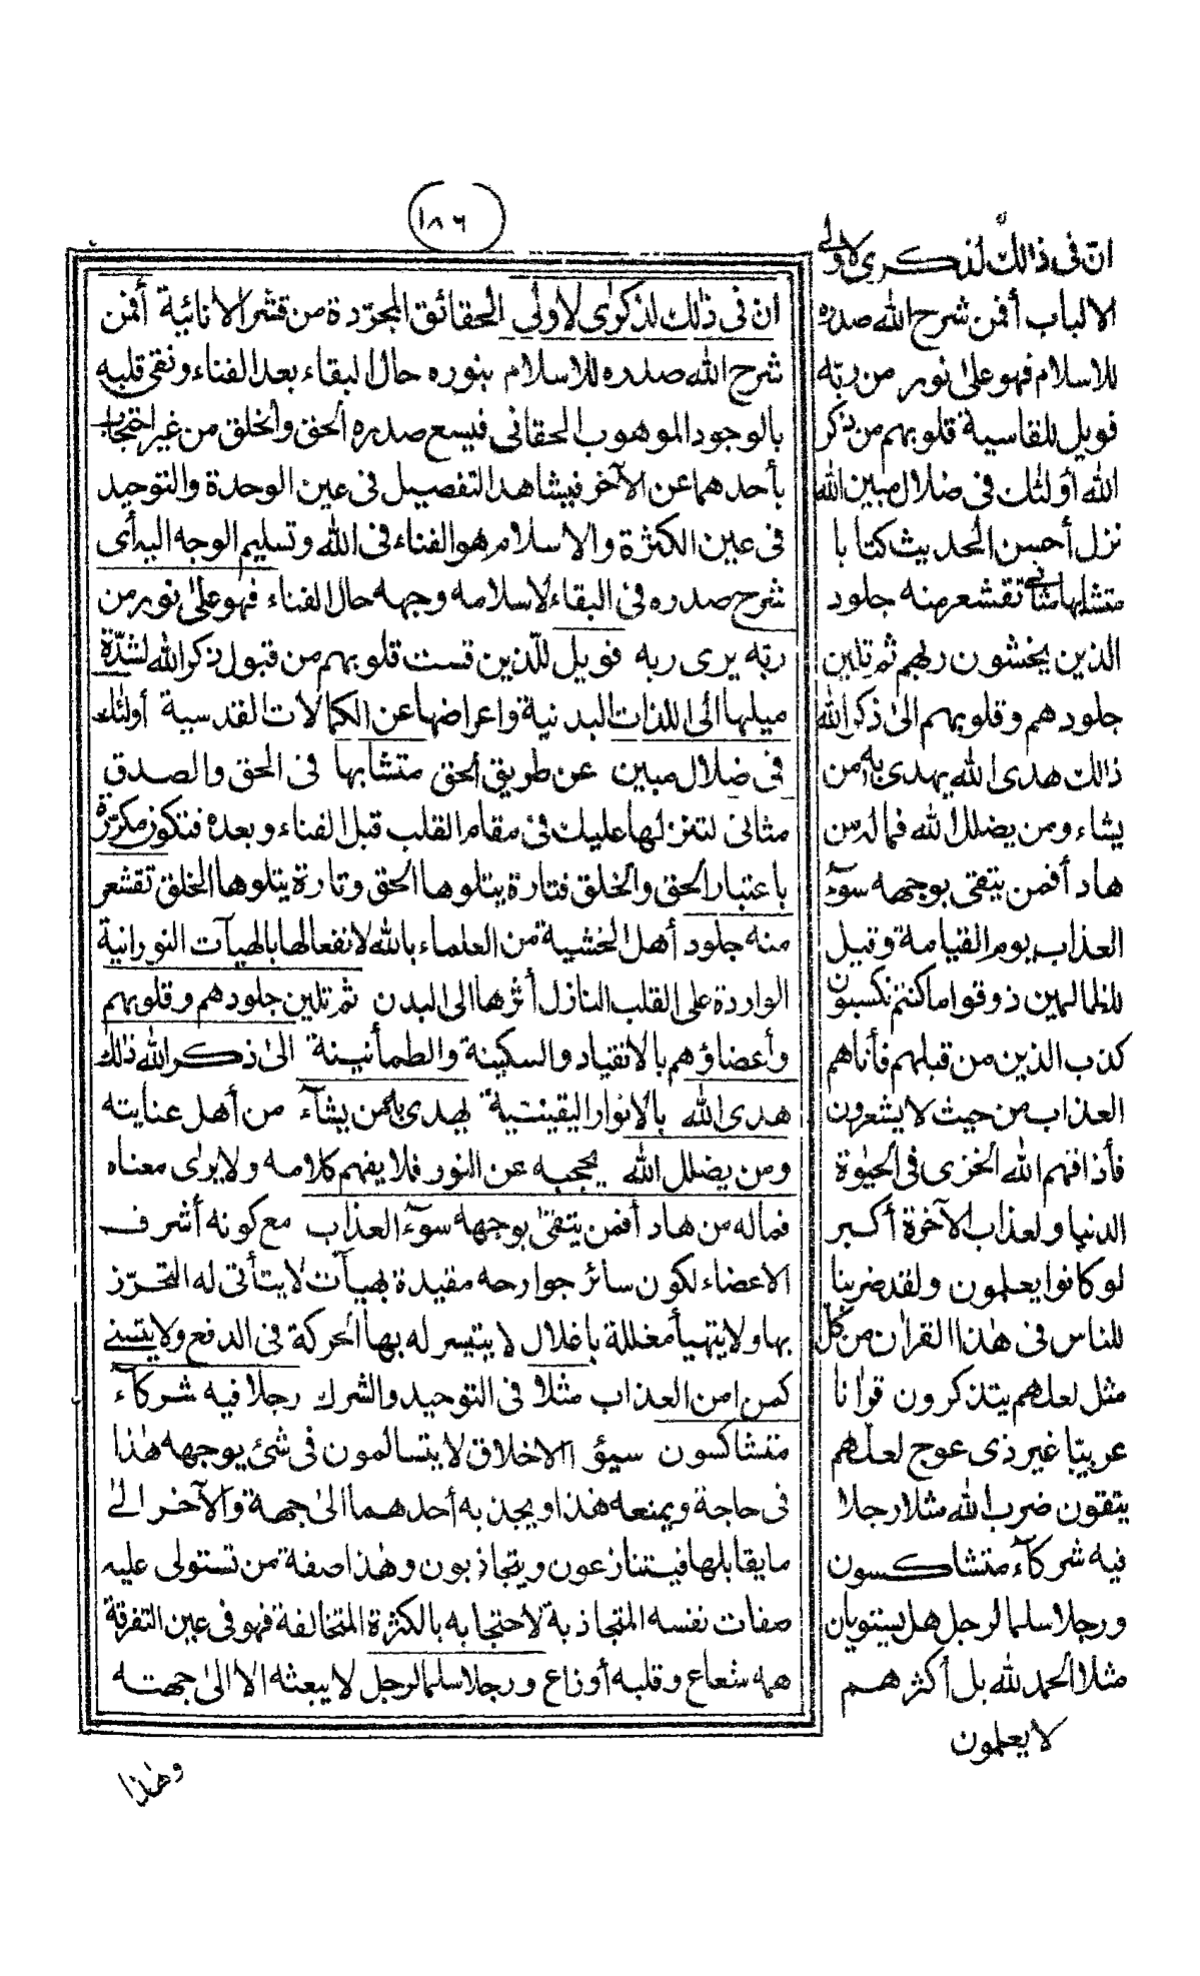 (١٨٦)
ان في ذالك لذكرى لاولى
الالباب أفمن شرح الله صدره
للاسلام فهو على نور من ربّه
فويل للقاسية قلوبهم من ذكر
الله أولئك في ضلال مبين الله
نزل أحسن الحديث كتابا
متشابها مثاني تقشعر منه جلود
الذين يخشون ربهم ثم تلين
جلودهم وقلوبهم الى ذكر الله
ذالك هدى الله يهدى به من
يشاء ومن يضلل الله فماله من
هاد أفمن يتقى بوجهه سوء
العذاب يوم القيامة وقيل
للظالمين ذوقوا ما كنتم تكسبون
كذب الذين من قبلهم فأتاهم
العذاب من حيث لا يشعرون
فأذاقهم الله الخزى في الحيوة
الدنيا ولعذاب الآخرة أكبر
لو كانوا يعلمون ولقد ضربنا
للناس في هذا القران من كل
مثل لعلهم يتذكرون قرانا
عربيّا غير ذى عوج لعلّهم
يتقون ضرب الله مثلا رجلا
فيه شركآء متشاكسون
ورجلا سلما لرجل هل يستويان
مثلا الحمد لله بل أكثرهم
لا يعلمون
ان في ذلك لذكرى لاولى الحقائق المجرّدة من قشر الانائية أفمن
شرح الله صدره للاسلام بنوره حال البقاء بعد الفناء ونقى قلبه
بالوجود الموهوب الحقاني فيسع صدره الحق والخلق من غير احتجاب
بأحدهما عن الآخر فيشاهد التفصيل في عين الوحدة والتوحيد
في عين الكثرة والاسلام هو الفناء في الله وتسليم الوجه اليه أى
شرح صدره في البقاء لاسلامه وجهه حال الفناء فهو على نور من
ربّه يرى ربه فويل للّذين قست قلوبهم من قبول ذكر الله لشدّة
ميلها الى اللذات البدنية واعراضها عن الكمالات القدسية أولئك
في ضلال مبين عن طريق الحق متشابها في الحق والصدق
مثانى لتنزلها عليك في مقام القلب قبل الفناء وبعده فتكون مكرّرة
باعتبار الحق والخلق فتارة يتلوها الحق وتارة يتلوها الخلق تقشعر
منه جلود أهل الخشية من العلماء بالله لانفعالها بالهيآت النورانية
الواردة على القلب النازل أثرها الى البدن ثم تلين جلودهم وقلوبهم
وأعضاؤهم بالانقياد والسكينة والطمأنينة الى ذكر الله ذلك
هدى الله بالانوار اليقينية يهدى به من يشآء من أهل عنايته
ومن يضلل الله يحجبه عن النور فلا يفهم كلامه ولا يرى معناه
فماله من هاد أفمن يتقى بوجهه سوء العذاب مع كونه أشرف
الاعضاء لكون سائر جوارحه مقيدة بهيآت لا يتأتى له التحرّز
بها ولا يتهيأ مغللة باغلال لا يتيسر له بها الحركة في الدفع ولا يتسنى
كمن امن العذاب مثلا في التوحيد والشرك رجلا فيه شركآء
متشاكسون سيؤا الاخلاق لا يتسالمون في شئ يوجهه هذا
في حاجة ويمنعه هذا ويجذبه أحدهما الى جهة والآخر الى
ما يقابلها فيتنازعون ويتجاذبون وهذا صفة من تستولى عليه
صفات نفسه المتجاذبة لاحتجابه بالكثرة المتخالفة فهو في عين التفرقة
همه شعاع وقلبه أوزاع ورجلا سلما لرجل لا يبعثه الا الى جهته
وهذا